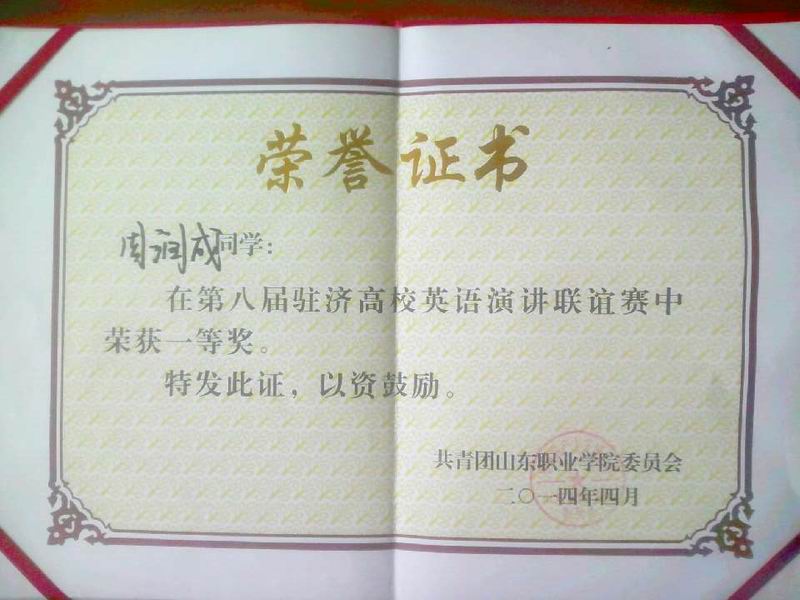 荣誉证书
周润成同学：
在第八届驻济高校英语演讲联谊赛中
荣获一等奖。
特发此证，以资鼓励。
共青团山东职业学院委员会
二〇一四年四月